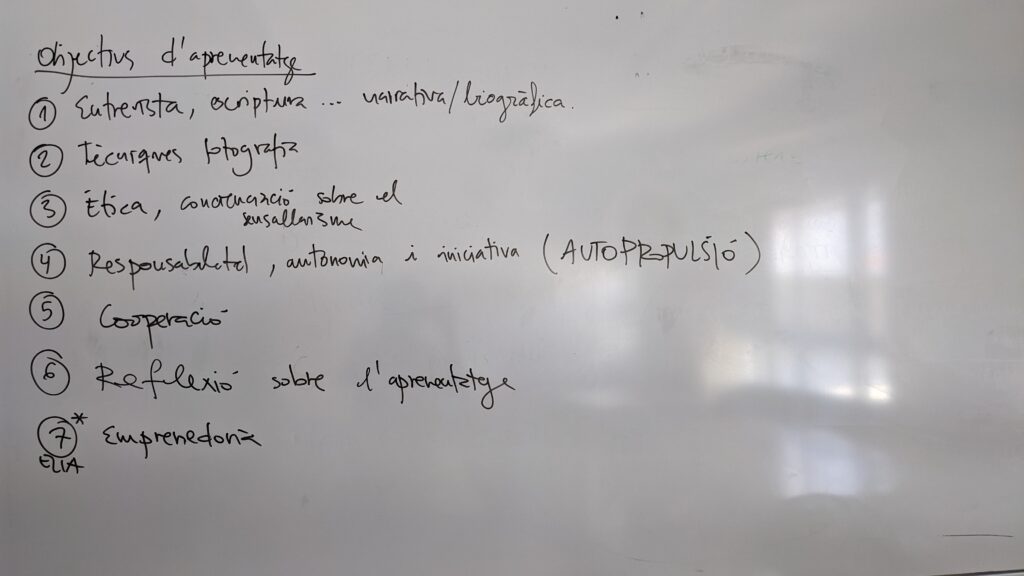 Objectius d'aprenentatge
① Entrevista, escriptura ... narrativa/biogràfica.
② Tècniques fotografia
③ Ètica, conscienciació sobre el
sensellarisme
④ Responsabilitat, autonomia i iniciativa (AUTOPROPULSIÓ)
⑤ Cooperació
⑥ Reflexió sobre l'aprenentatge
⑦* Emprenedoria
ELIA